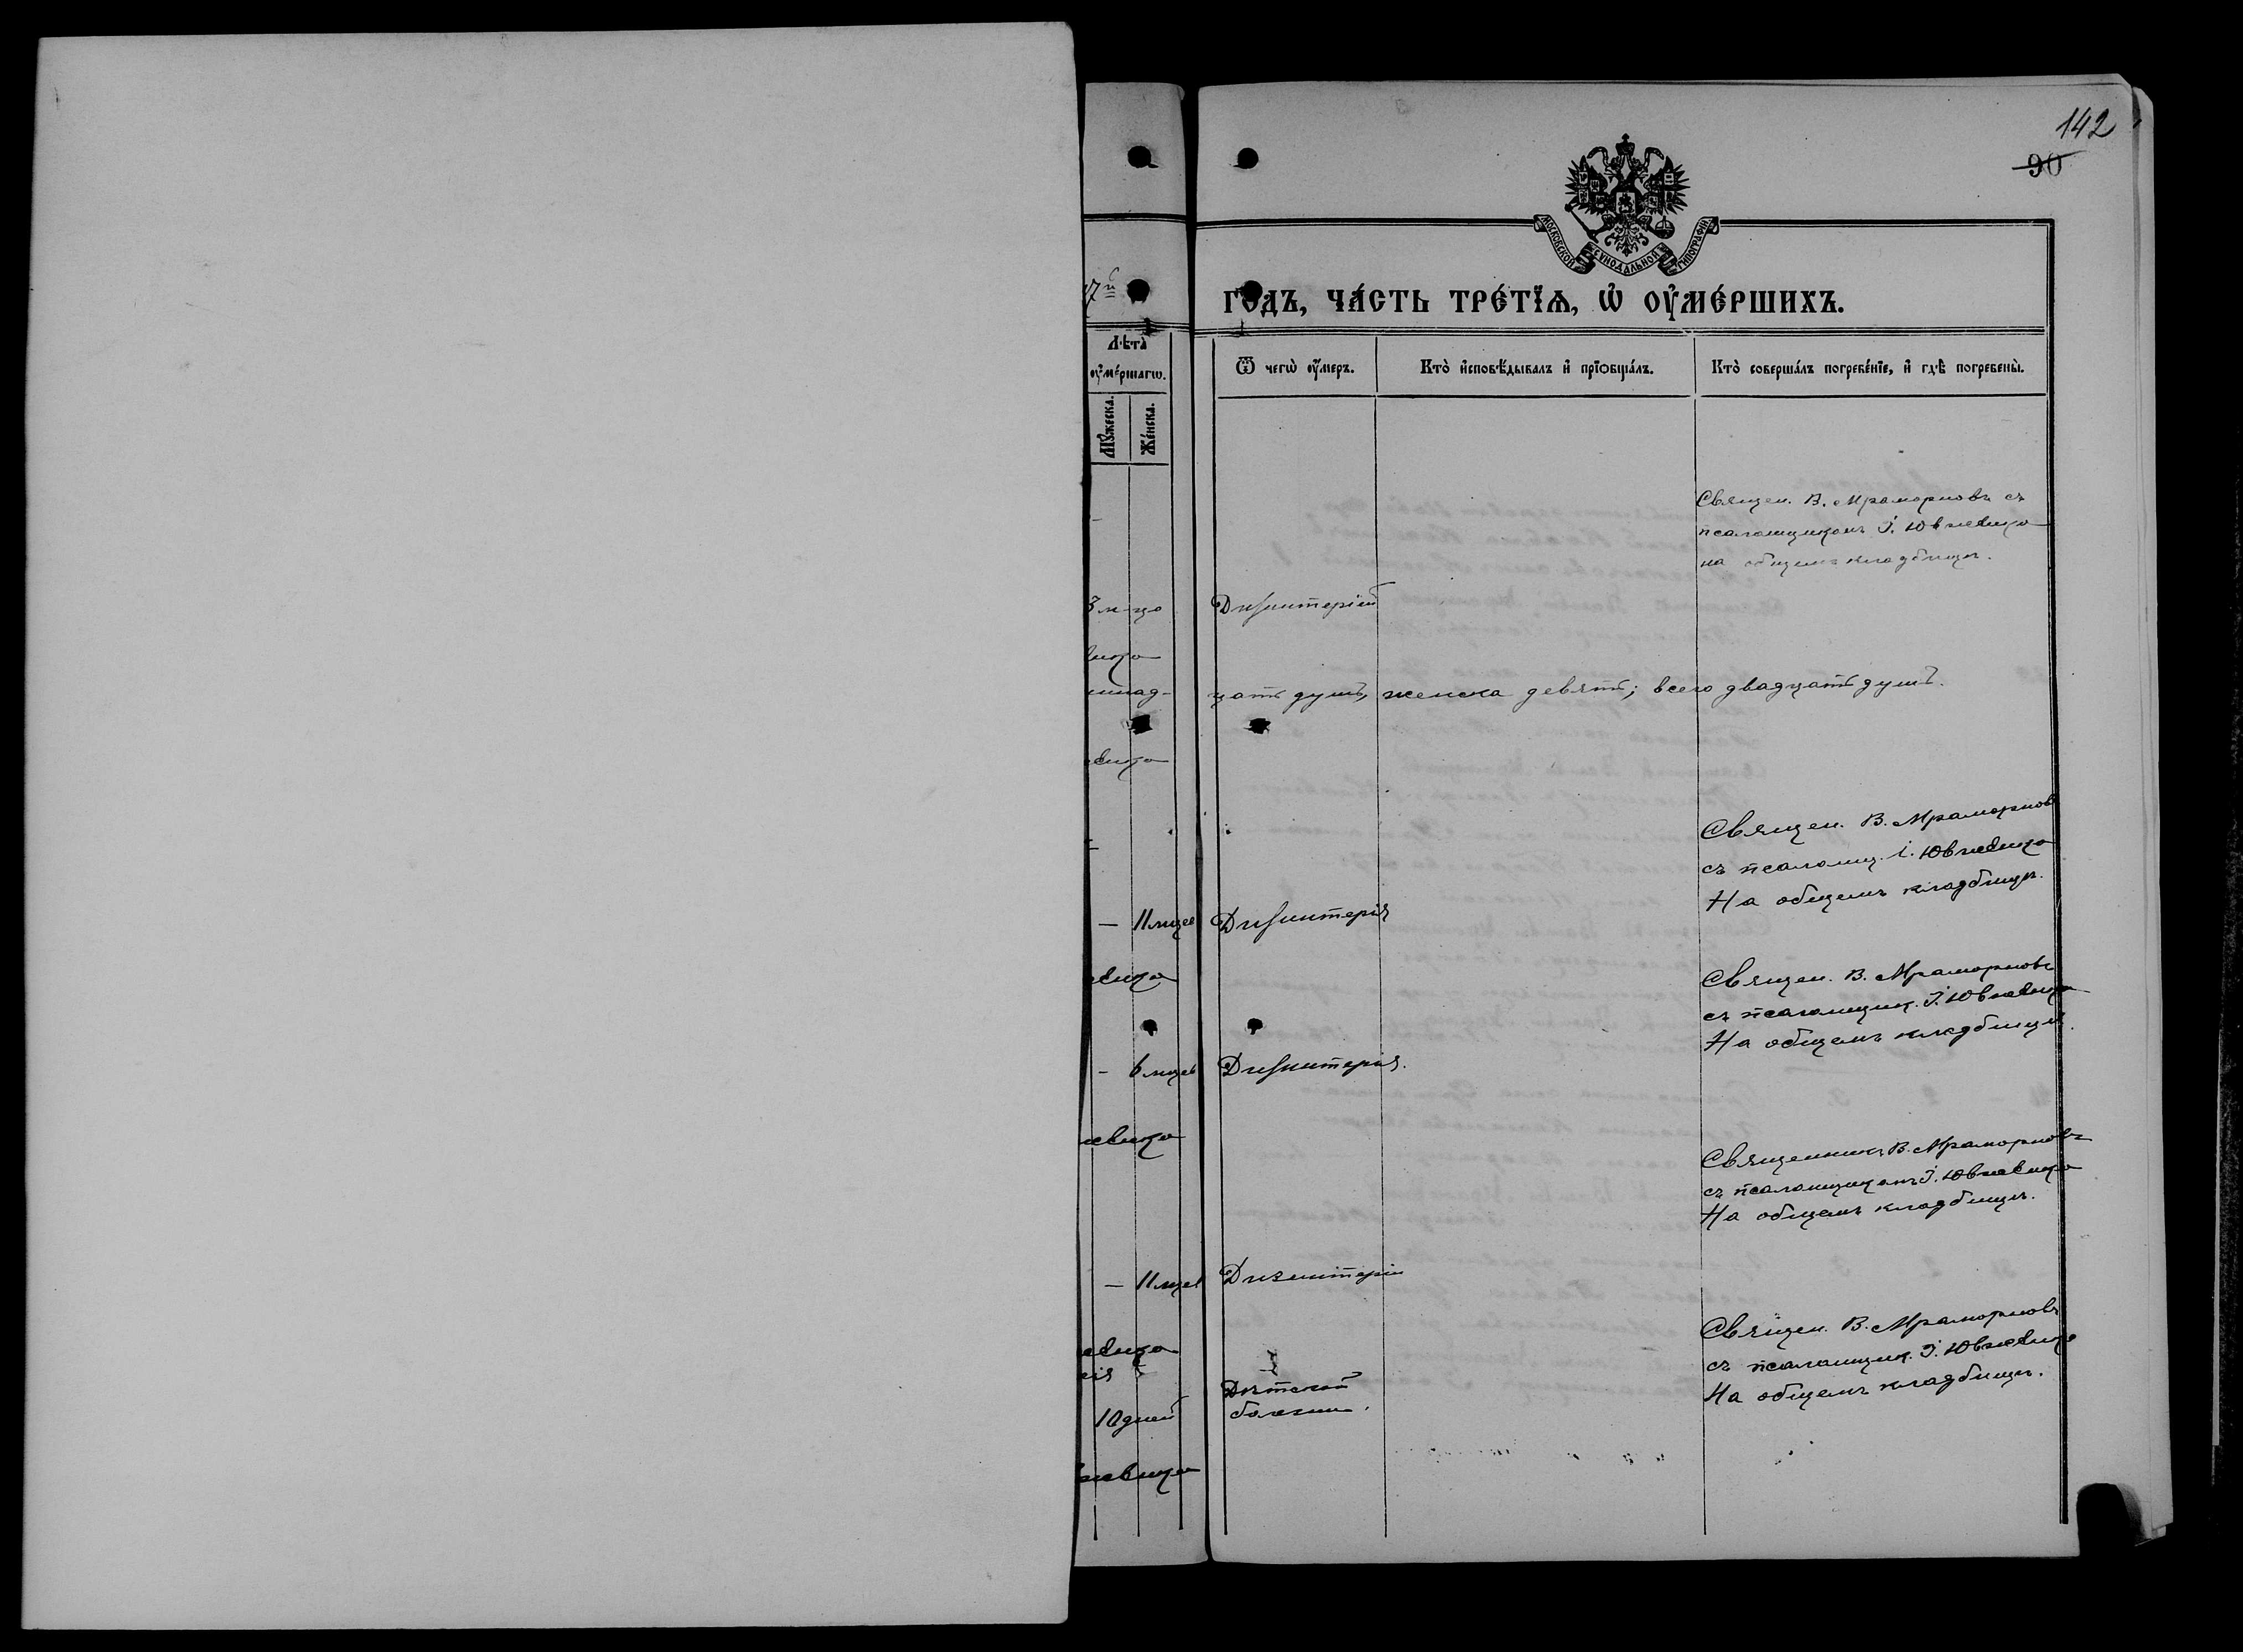 142
90
МОСКОВСКОЙ СУНОДАЛЬНОЙ ТИПОГРАФІИ
7й
ГО́ДЪ, ЧА́СТЬ ТРЕ́ТЇѦ, Ѡ҆ ОУ҆МЕ́РШИХЪ.
Лѣта̀ оу҆ме́ршагѡ.
Мꙋ́жеска.
Же́нска.
Ѿ чегѡ̀ оу҆́меръ.
Кто̀ и҆сповѣ́дывалъ и҆ прїѡбща́лъ.
Кто̀ соверша́лъ погребе́нїе, и҆ гдѣ̀ погребены̀.
Священ. В. Мраморновъ съ
псаломщикомъ І. Ювжевицо
на общемъ кладбищѣ.
3 м-цо
Дизинтеріей
цать душъ, женска девять; всего двадцать душъ.
Священ. В. Мраморновъ
съ псаломщ. І. Ювжевицо
На общемъ кладбищѣ.
— 11 мцев
Дизинтерія
Священ. В. Мраморновъ
съ псаломщик. І. Ювжевицо
На общемъ кладбищѣ.
- 6 мцев
Дизинтерія.
Священникъ В. Мраморновъ
съ псаломщикомъ І. Ювжевицо
На общемъ кладбищѣ.
— 11 мцев
Дизентеріи
Священ. В. Мраморновъ
съ псаломщик. І. Ювжевицо
На общемъ кладбищѣ.
10 дней
Дѣтской
болезни.